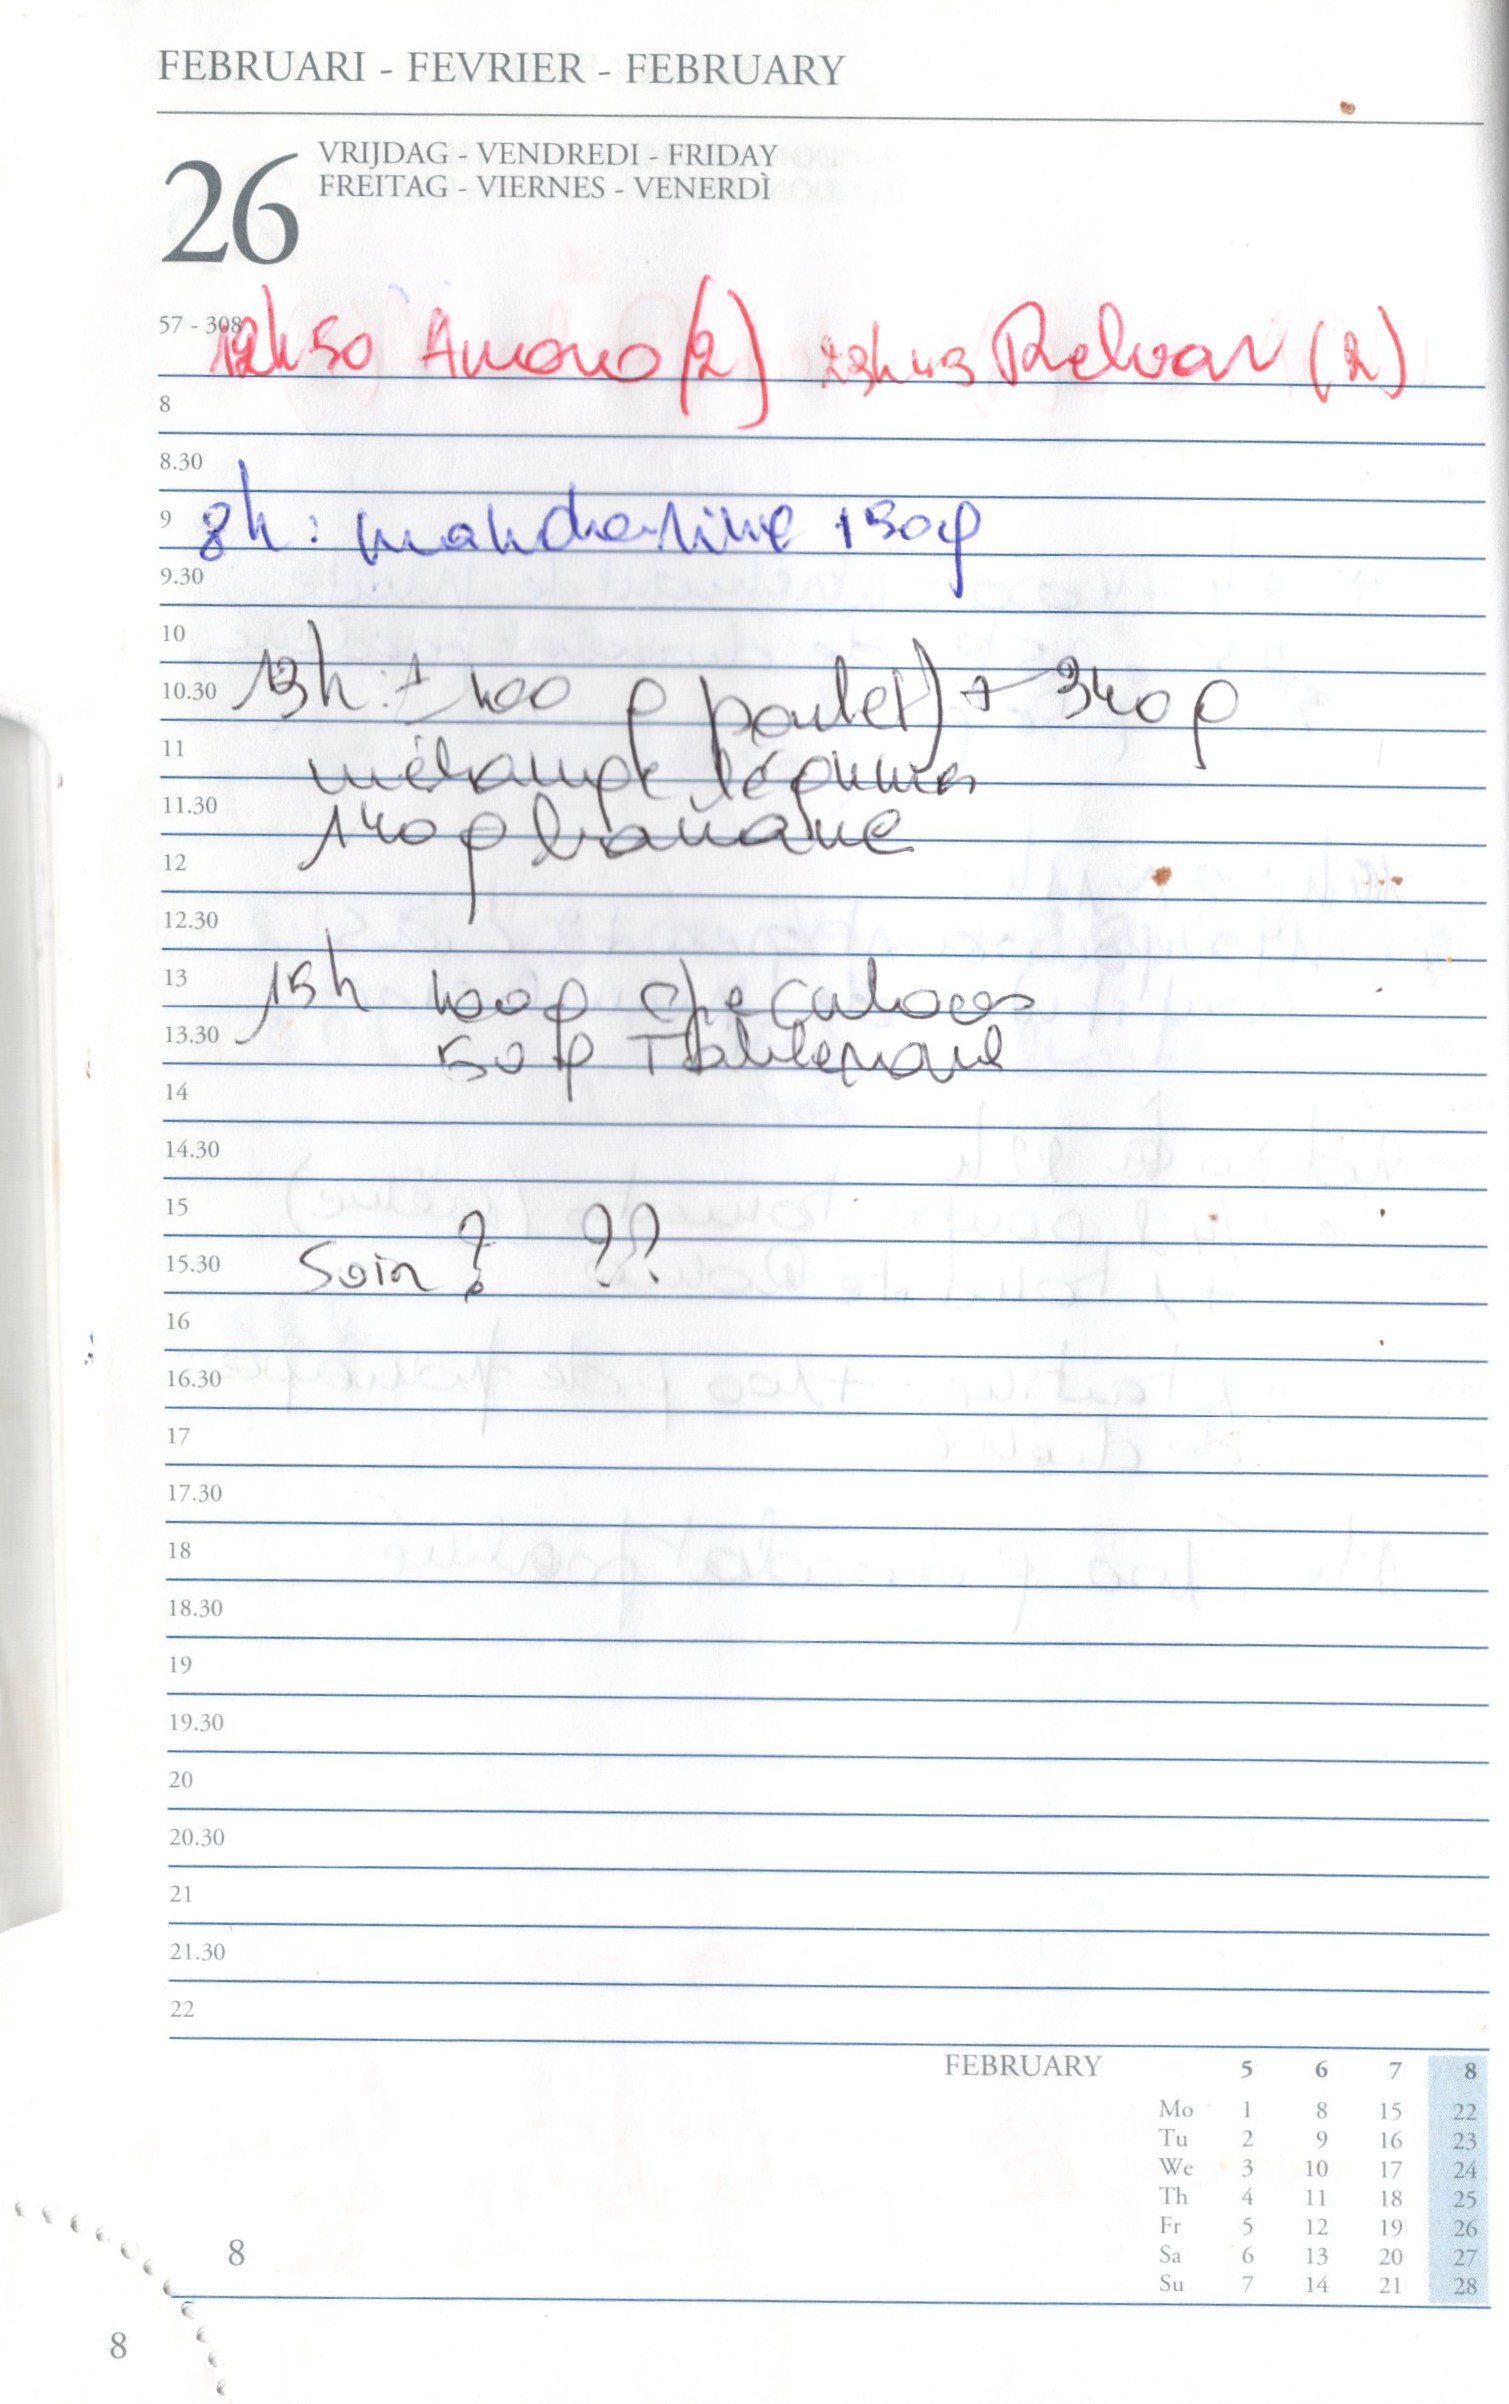 FEBRUARI - FEVRIER - FEBRUARY
26
VRIJDAG - VENDREDI - FRIDAY
FREITAG - VIERNES - VENERDÌ
57 - 308
12h50 (2) 23h45 Relvar (2)
8
8.30
9
8h: mandarine 150g
9.30
10
10.30
13h: ± 400 g poulet) + 340 g
11
mélange légumes
11.30
140g banane
12
12.30
13
15h 400g
13.30
50 g
14
14.30
15
15.30
Soir? ??
16
16.30
17
17.30
18
18.30
19
19.30
20
20.30
21
21.30
22
FEBRUARY 5 6 7 8
Mo 1 8 15 22
Tu 2 9 16 23
We 3 10 17 24
Th 4 11 18 25
Fr 5 12 19 26
Sa 6 13 20 27
Su 7 14 21 28
8
8